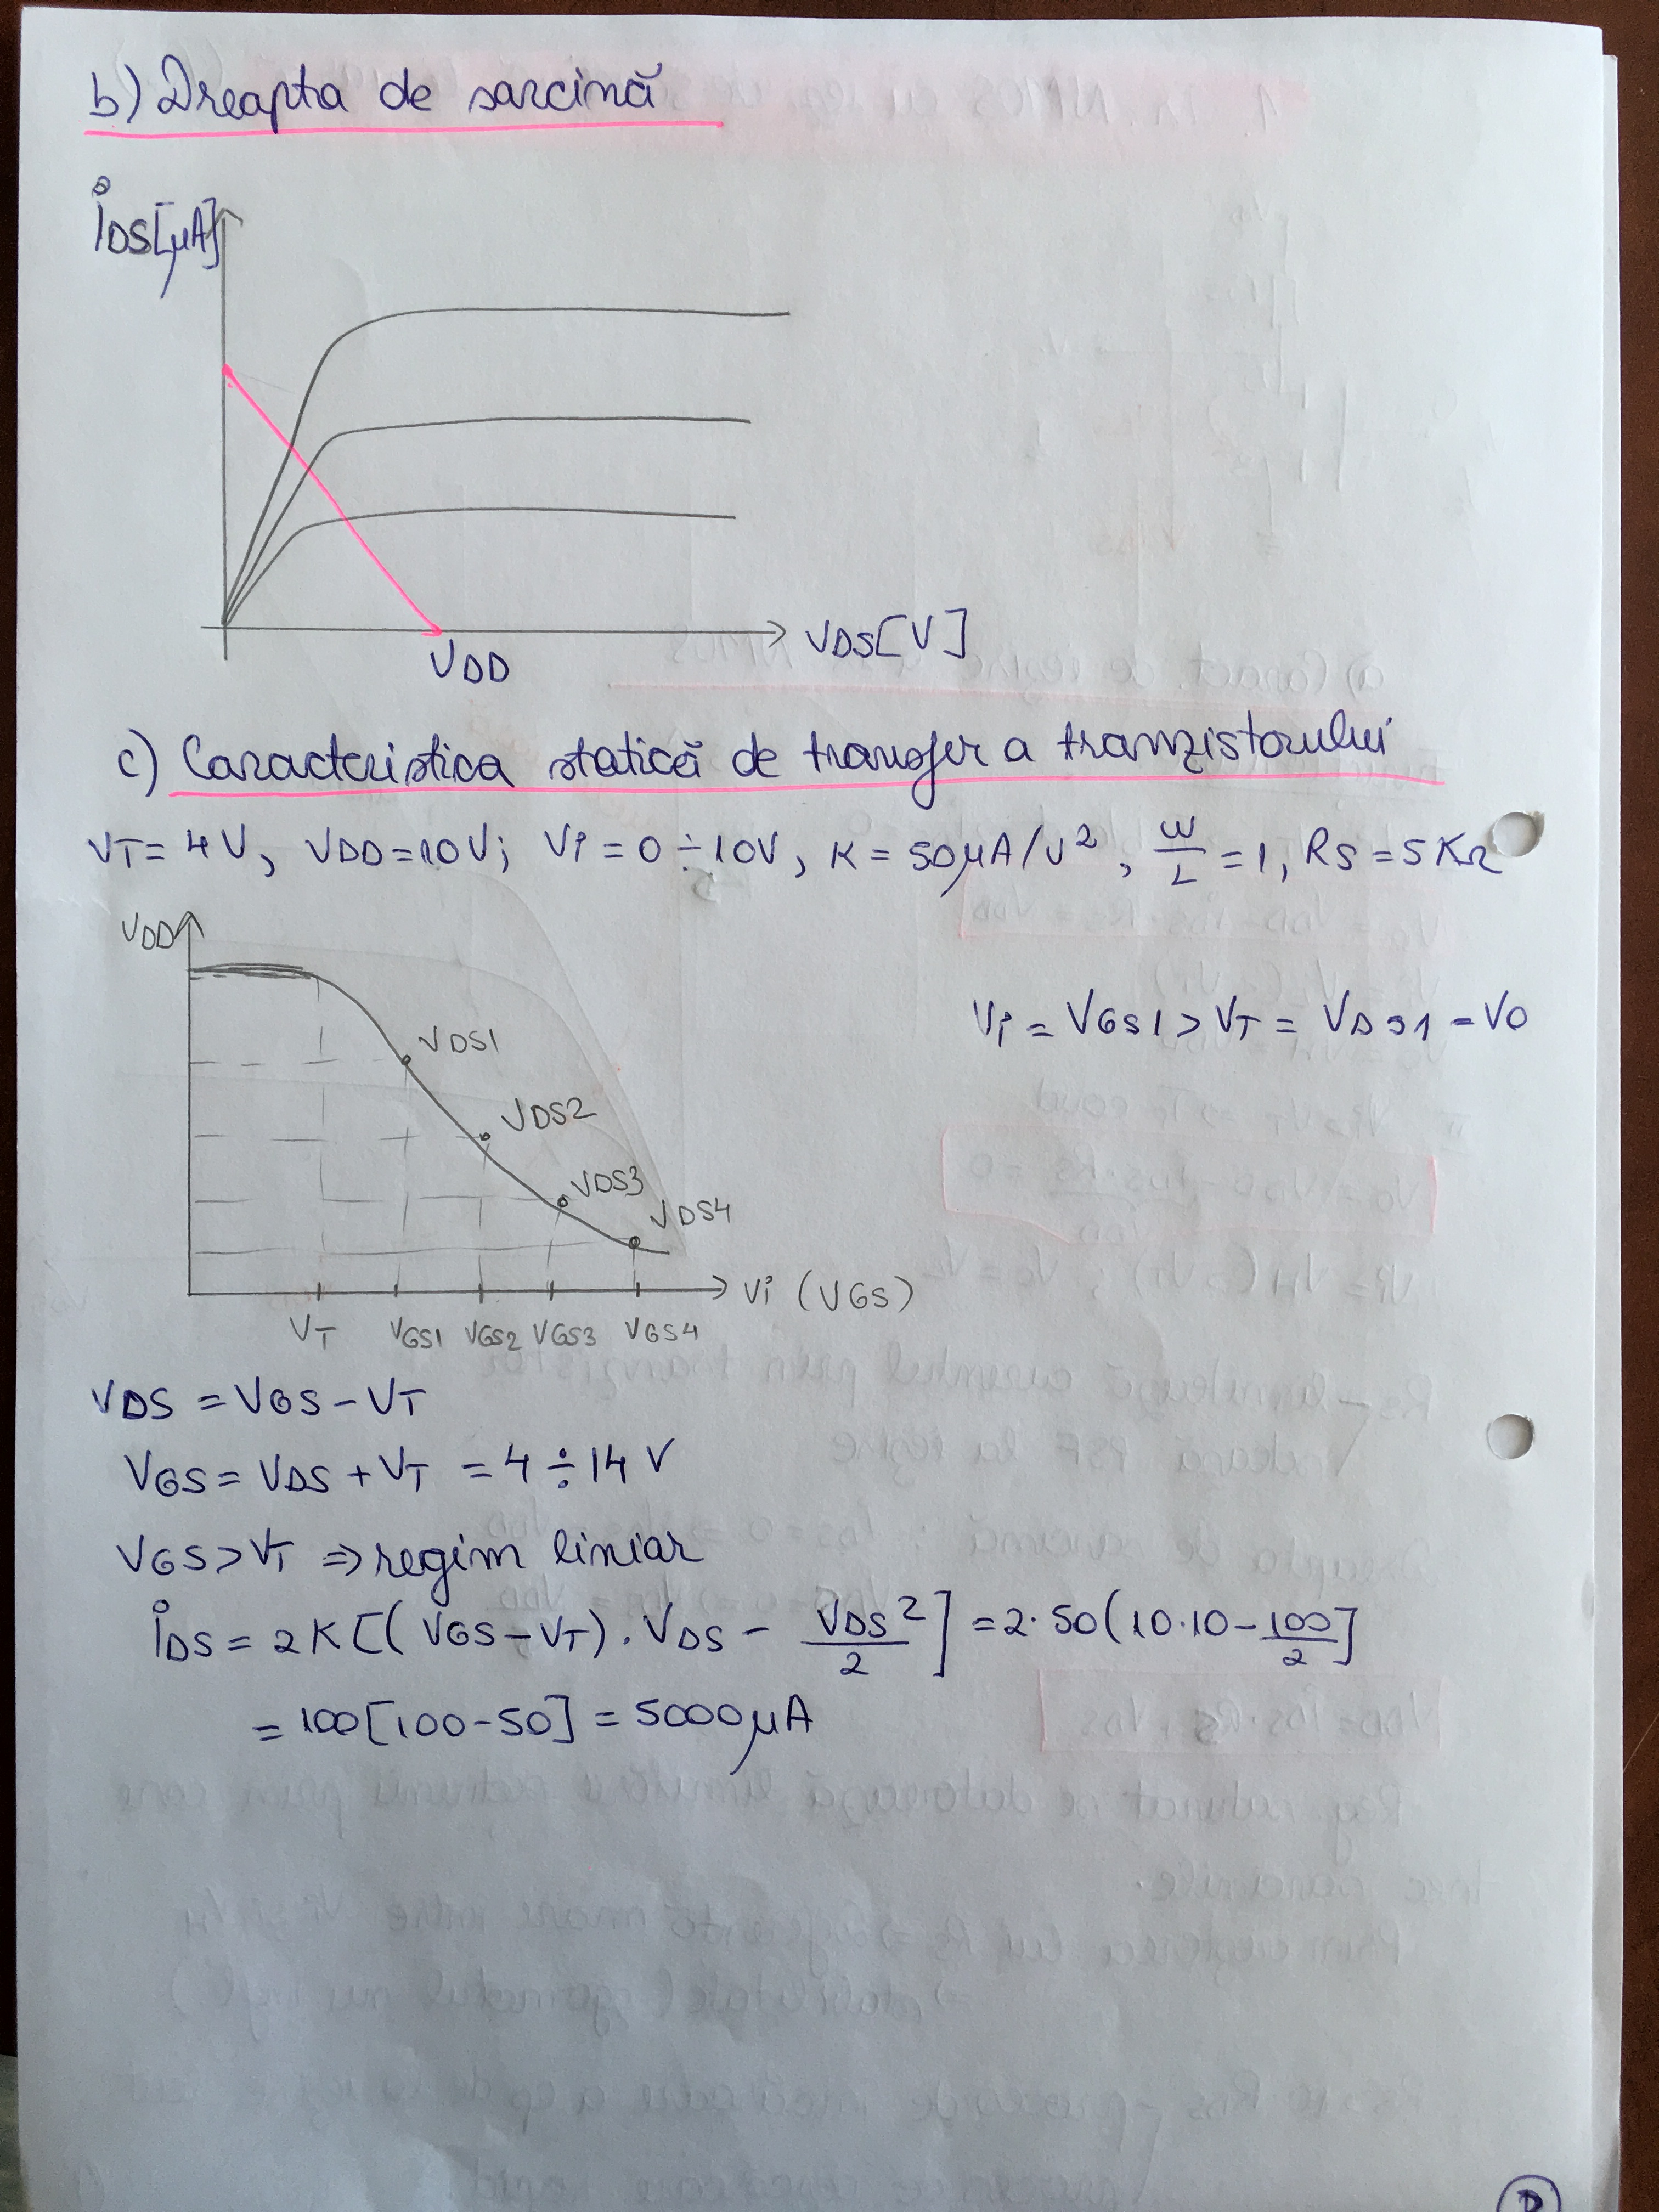 b) Dreapta de sarcină
iDS[μA]
VDS[V]
VDD
c) Caracteristica statică de transfer a tranzistorului
VT = 4V, VDD=10V; Vi = 0÷10V, K = 50μA/V², W/L = 1, RS = 5KΩ
VDD
Vi = VGS1 > VT = VDS1 = VO
VDS1
VDS2
VDS3
VDS4
Vi (VGS)
VT VGS1 VGS2 VGS3 VGS4
VDS = VGS - VT
VGS = VDS + VT = 4÷14V
VGS > VT ⇒ regim liniar
iDS = 2K[(VGS-VT).VDS - VDS²/2] = 2·50(10·10 - 100/2]
= 100[100-50] = 5000μA